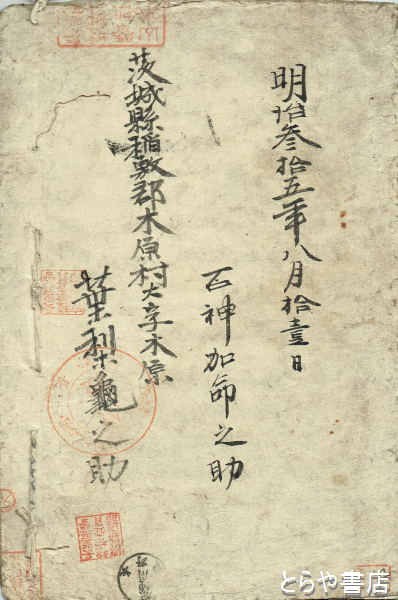 明治叄拾五年八月拾壹日
百神加命之助
茨城縣稲敷郡木原村大字木原
葉梨龜之助
とらや書店